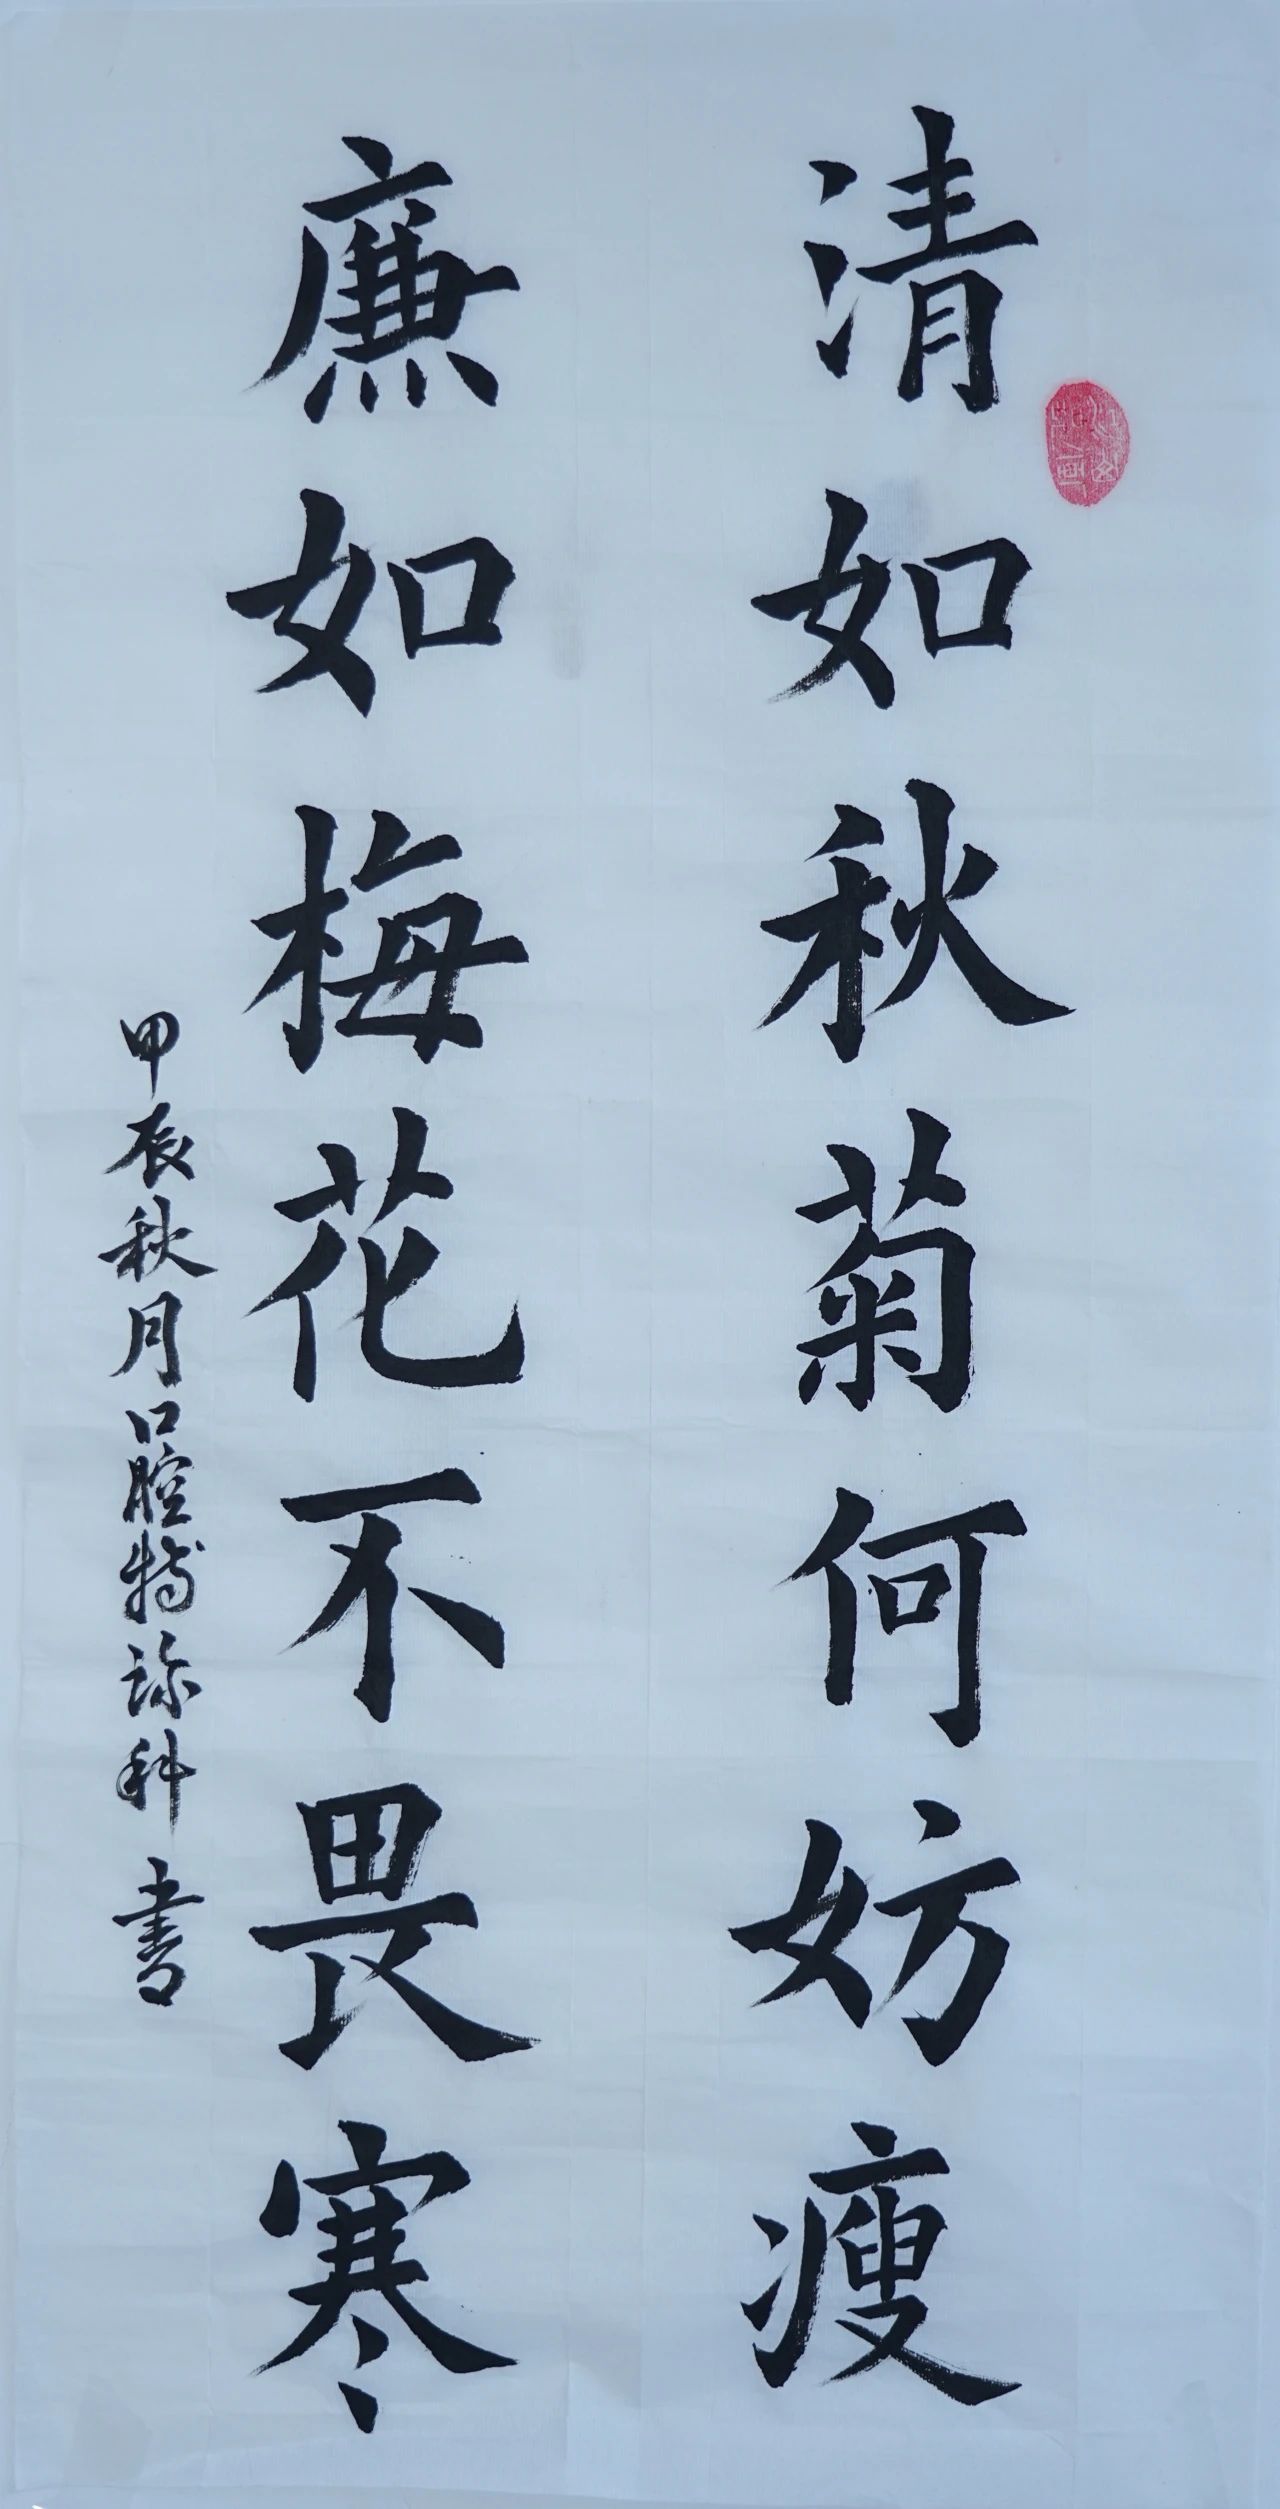 清如秋菊何妨瘦
廉如梅花不畏寒
甲辰秋月口腔特诊科书